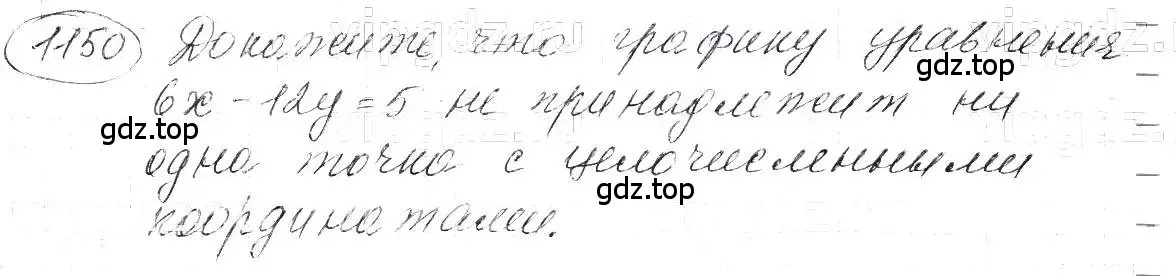 1150 Докажите, что графику уравнения
6x - 12y = 5 не принадлежит ни
gdz.top
gdz.top
одна точка с целочисленными
gdz.top
координатами.